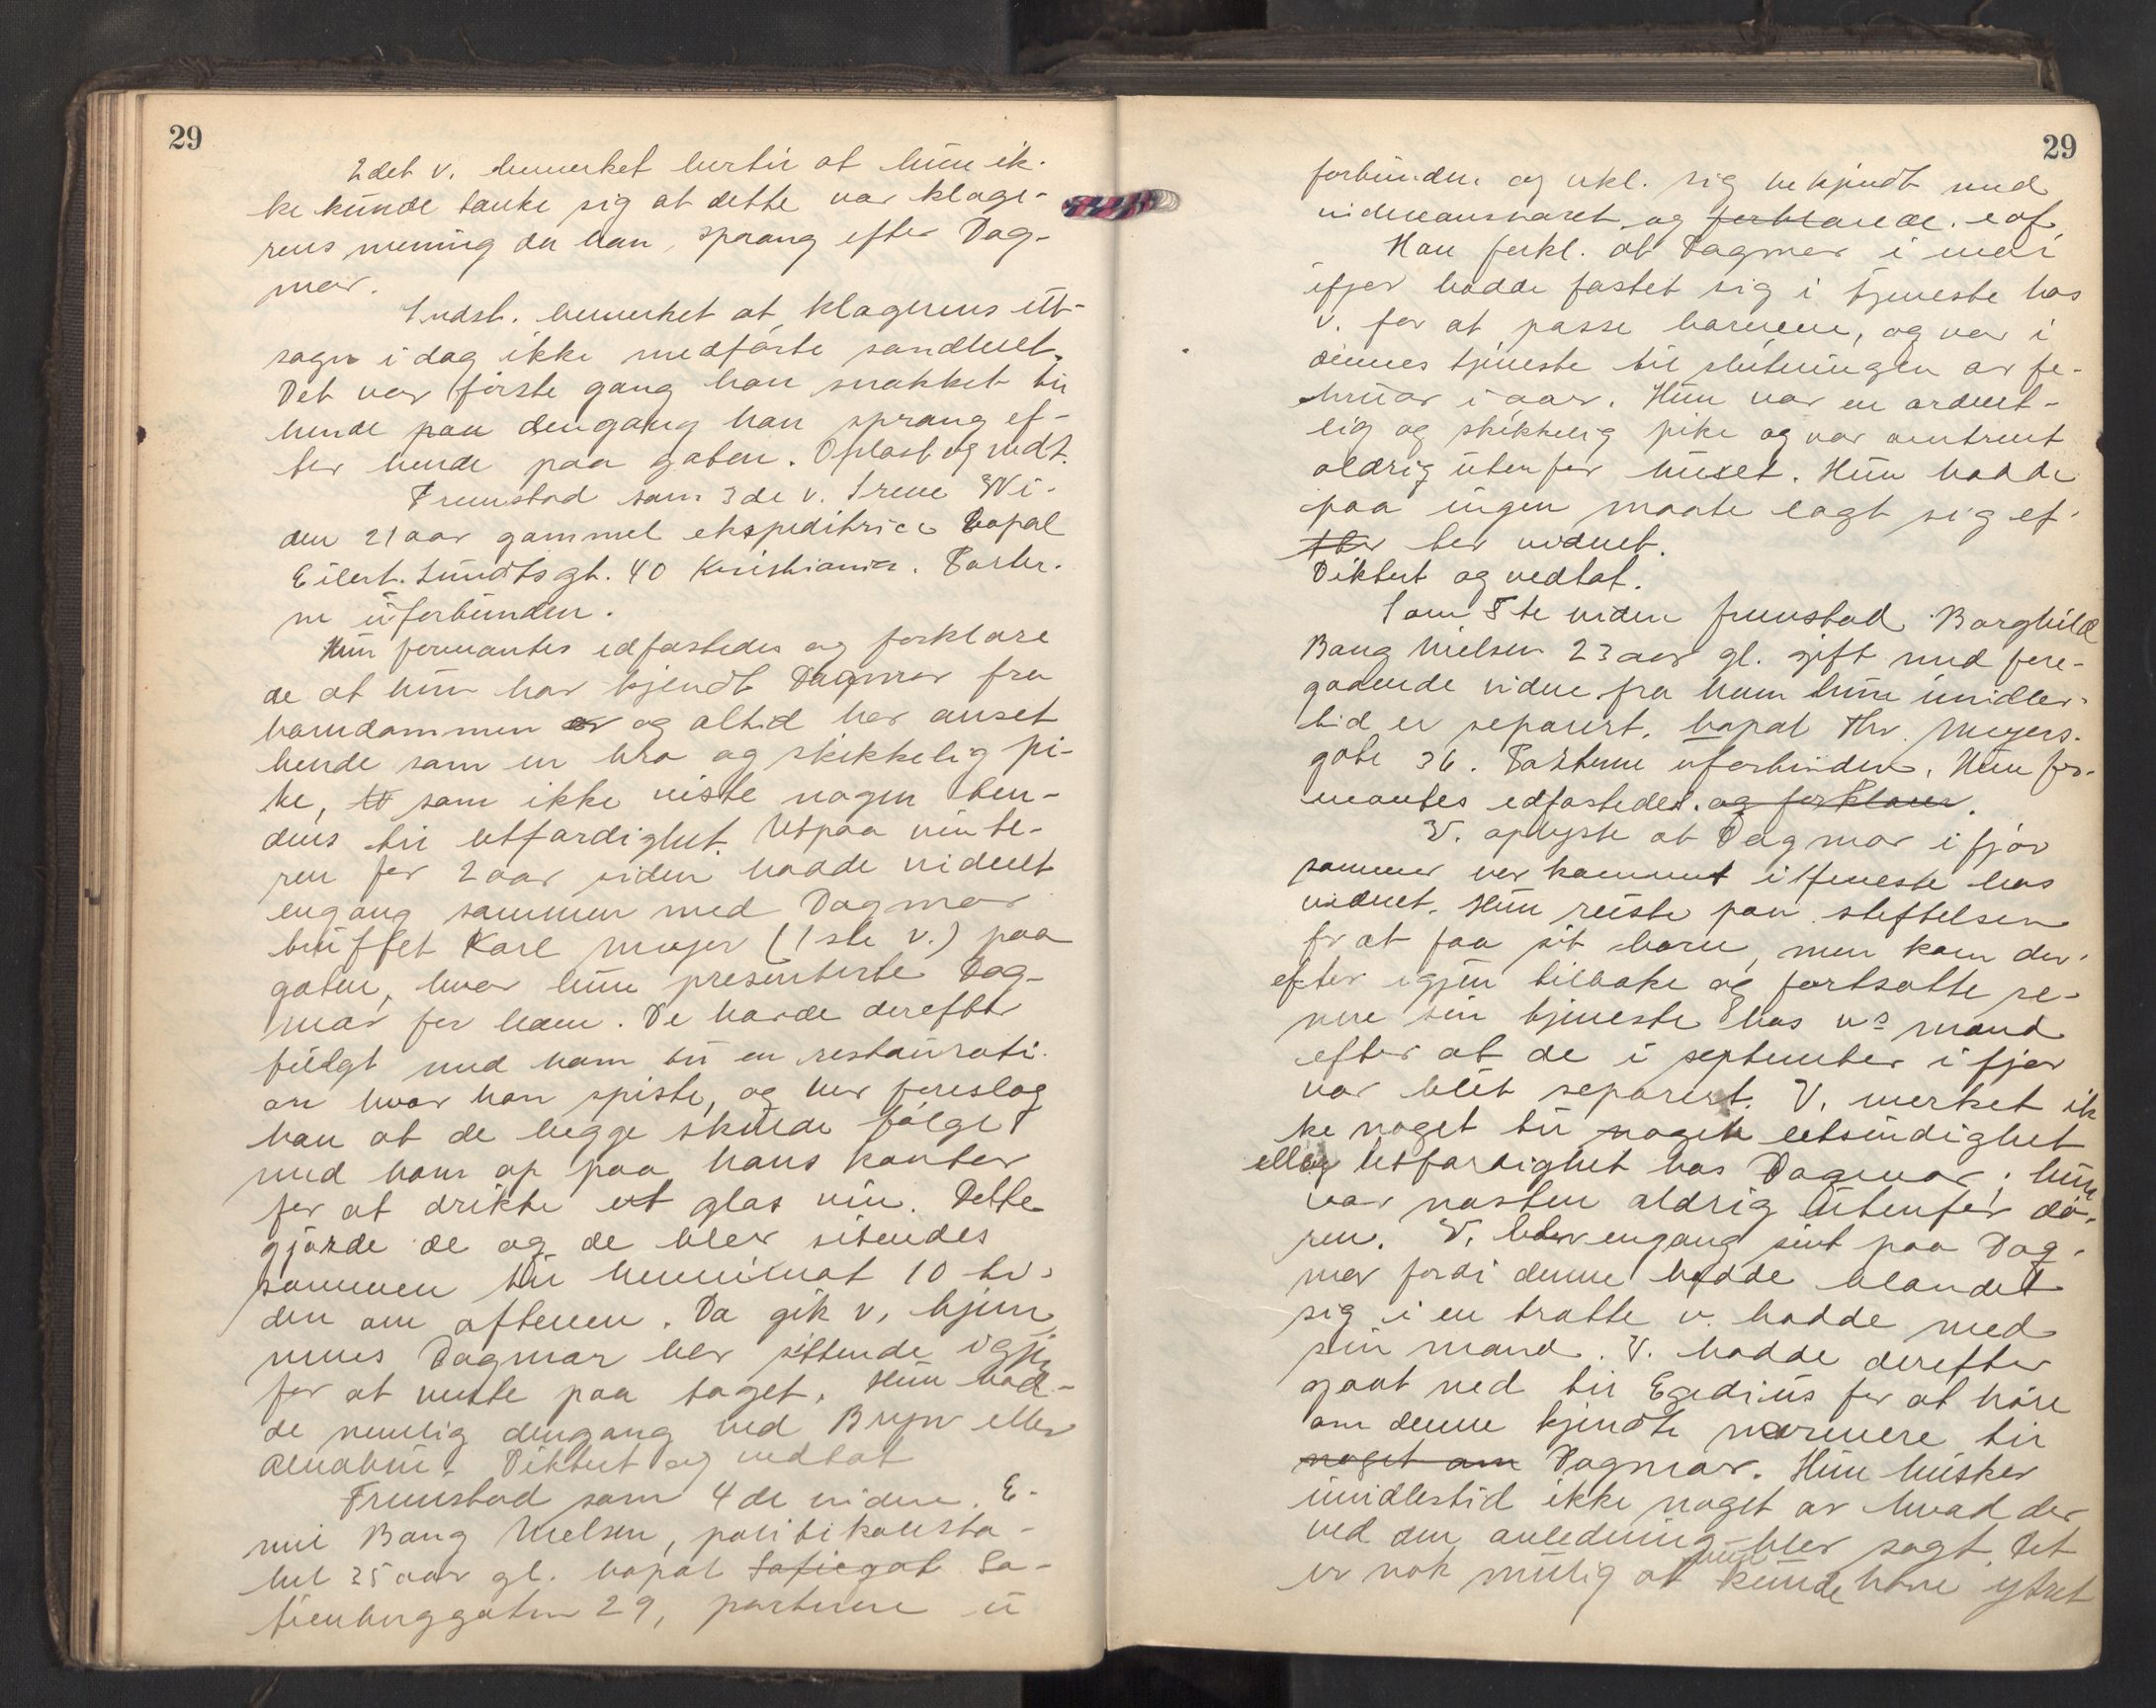 29
2det v. bemerket hertil at hun ik-
ke kunde tænke sig at dette var klage-
rens mening da han sprang efter Dag-
mar.
Indst. bemerket at klagerens ut-
sagn i dag ikke medførte sandhet.
Det var første gang han snakket til
hende paa dengang han sprang ef-
ter hende paa gaten. Oplæst og vedt.
Fremstod som 3de v. Irene Wi-
den 21 aar gammel ekspeditrice bopæl
Eilert Sundts gt. 40 Kristiania. Parter-
ne uforbunden.
Hun formantes edfæstedes og forklare
de at hun har kjendt Dagmar fra
barndommen og altid har anset
hende som en bra og skikkelig pi-
ke, som ikke viste nogen ten-
dens til letfærdighet. Utpaa vinte-
ren for 2 aar siden hadde vidnet
engang sammen med Dagmar
truffet Karl Meyer (1ste v.) paa
gaten, hvor hun presenterte Dag-
mar for ham. De hadde derefter
fulgt med ham til en restaurati-
on hvor han spiste, og her foreslog
han at de begge skulde følge
med ham op paa hans kontor
for at drikke et glas vin. Dette
gjorde de og de blev sitendes
sammen til henimot 10 ti-
den om aftenen. Da gik v. hjem
mens Dagmar blev sittende igjen
for at vente paa toget. Hun bod-
de nemlig dengang ved Bryn eller
Alnabru. Diktert og vedtat
Fremstod som 4de vidne. E-
mil Bang Nielsen, politikonsta-
bel 25 aar gl. bopæl Sofiegat So-
fienberggaten 29, parterne u
29
forbunden og erkl. sig bekjendt med
vidneansvaret og forklarede. edf.
Han forkl. at Dagmar i mai
ifjor hadde fæstet sig i tjeneste hos
v. for at passe barnene, og var i
dennes tjeneste til slutningen av fe-
bruar i aar. Hun var en ordent-
lig og skikkelig pike og var omtrent
aldrig utenfor huset. Hun hadde
paa ingen maate lagt sig ef-
ter vidnet.
Diktert og vedtat.
Som 5te vidne fremstod Borghild
Bang Nielsen 23 aar gl. gift med fore-
gaaende vidne fra ham hun imidler-
tid er separert. bopæl Thv. Meyers-
gate 36. Parterne uforbunden. Hun for-
mantes edfæstedes. og forklarer.
V. oplyste at Dagmar i fjor
sommer var kommet i tjeneste hos
vidnet. Hun reiste paa stiftelsen
for at faa sit barn, men kom der-
efter igjen tilbake og fortsatte se-
nere sin tjeneste hos v.s mand
efter at de i september i fjor
var blit separert. V. merket ik
ke noget til nogen letsindighet
eller letfærdighet hos Dagmar; hun
var næsten aldrig utenfor dø-
ren. V. blev engang sint paa Dag-
mar fordi denne hadde blandet
sig i en trætte v. hadde med
sin mand. V. hadde derefter
gaat ned til Egedius for at høre
om denne kjendte nærmere til
noget om Dagmar. Hun husker
imidlertid ikke noget av hvad der
ved den anledning blev sagt. Det
er nok mulig at hun kunde have ytret